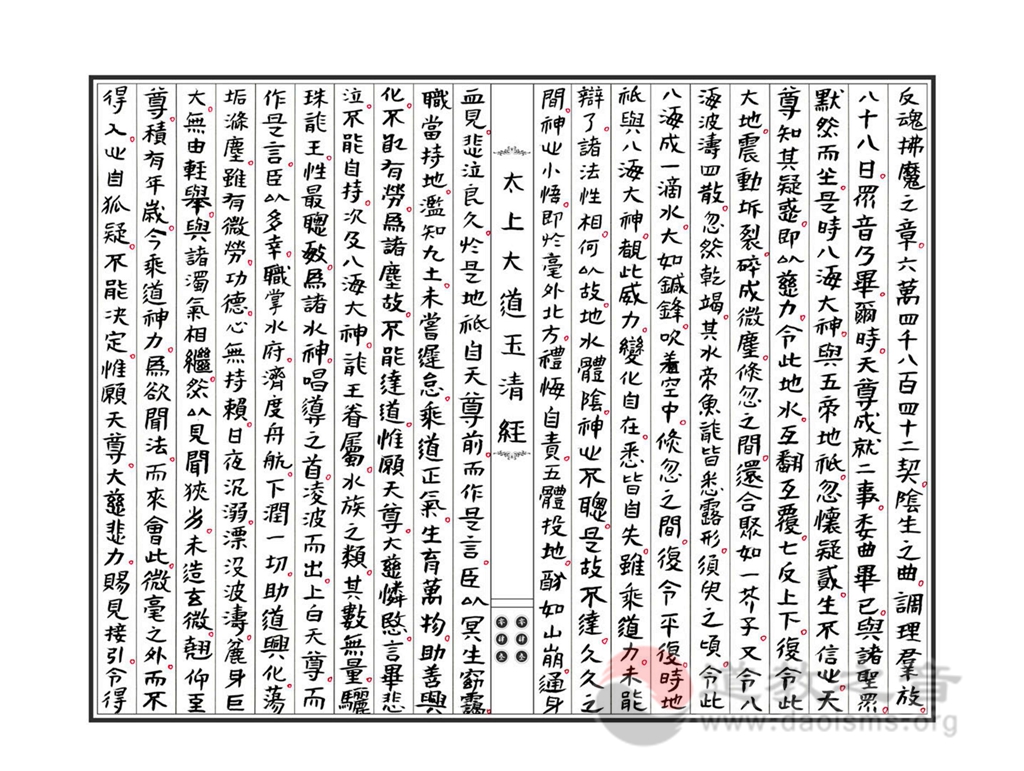 反魂拂魔之章六萬四千八百四十二契陰生之曲調理羣放
八十八日眾音乃畢爾時天尊成就二事委曲畢已與諸聖眾
默然而坐是時八海大神與五帝地祇忽懷疑貳生不信心天
尊知其疑惑即以慈力令此地水互翻互覆七反上下復令此
大地震動坼裂碎成微塵倏忽之間還合聚如一芥子又令八
海波濤四散忽然乾竭其水帝魚龍皆悉露形須臾之頃令此
八海成一滴水大如鍼鋒吹着空中倏忽之間復令平復時地
祇與八海大神觀此威力變化自在悉皆自失雖乘道力未能
辯了諸法性相何以故地水體陰神心不聰是故不達久久之
間神心小悟即於毫外北方禮悔自責五體投地酥如山崩通身
太上大道玉清經
零肆零肆叁叁
血見悲泣良久於是地祇自天尊前而作是言臣以冥生竊靈
職當持地濫知九土未嘗遲怠乘道正氣生育萬物助善興
化不敢有勞為諸塵故不能達道惟願天尊大慈憐愍言畢悲
泣不能自持次及八海大神龍王眷屬水族之類其數無量驪
珠龍王性最聰敏為諸水神唱導之首凌波而出上白天尊而
作是言臣以多幸職掌水府濟度舟航下潤一切助道興化蕩
垢滌塵雖有微勞功德心無持賴日夜沉溺漂沒波濤麄身巨
大無由輕舉與諸濁氣相繼然以見聞狹劣未造玄微翹仰至
尊積有年歲今乘道神力為欲聞法而來會此微毫之外而不
得入心自狐疑不能決定惟願天尊大慈悲力賜見接引令得
道教之音
www.daoisms.org